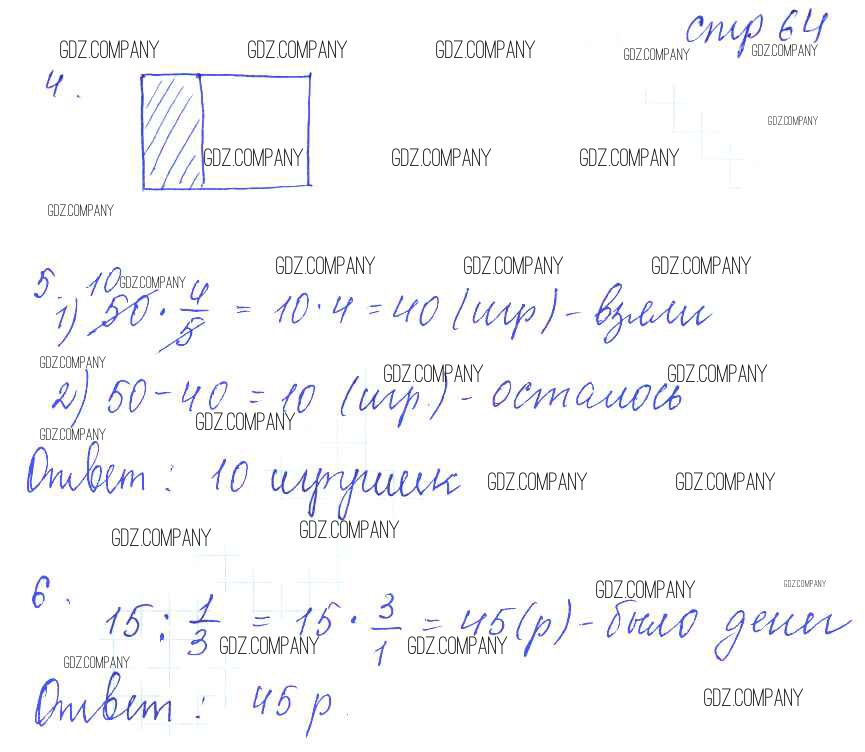 стр 64
GDZ.COMPANY GDZ.COMPANY GDZ.COMPANY GDZ.COMPANY GDZ.COMPANY
4.
GDZ.COMPANY
GDZ.COMPANY GDZ.COMPANY GDZ.COMPANY
GDZ.COMPANY
GDZ.COMPANY GDZ.COMPANY GDZ.COMPANY
5. 10 GDZ.COMPANY
1) 50 · 4/5 = 10 · 4 = 40 (игр) - взяли
GDZ.COMPANY GDZ.COMPANY GDZ.COMPANY
2) 50 - 40 = 10 (игр.) - осталось
GDZ.COMPANY GDZ.COMPANY
Ответ: 10 игрушек GDZ.COMPANY GDZ.COMPANY
GDZ.COMPANY GDZ.COMPANY
6. GDZ.COMPANY GDZ.COMPANY
15 : 1/3 = 15 · 3/1 = 45 (р) - было денег
GDZ.COMPANY GDZ.COMPANY GDZ.COMPANY
Ответ: 45 р. GDZ.COMPANY